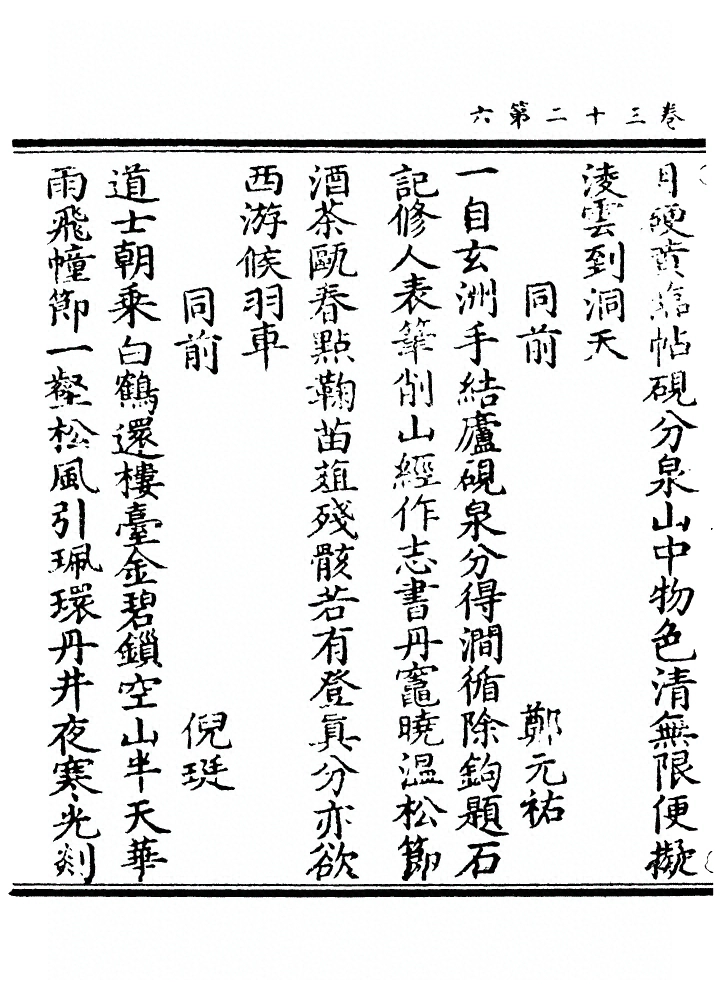 卷三十二第六
月硬黃臨帖硯分泉山中物色清無限便擬
淩雲到洞天
同前 鄭元祐
一自玄洲手結廬硯泉分得澗循除鉤題石
記修人表筆削山經作志書丹竈曉溫松節
酒茶甌春點鞠苗葅殘骸若有登眞分亦欲
西游候羽車
同前 倪珽
道士朝乘白鶴還樓臺金碧鎖空山半天華
雨飛幢節一壑松風引珮環丹井夜寒光剡